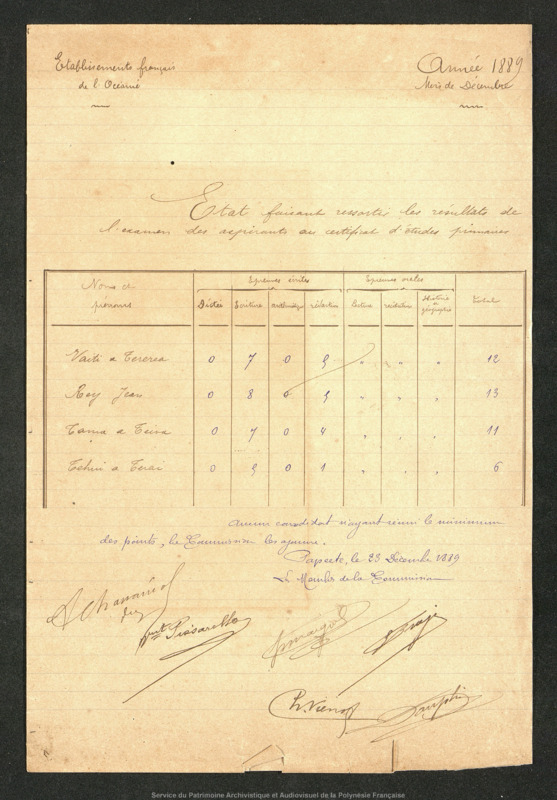 Etablissements français
de l'Océanie
Année 1889
Mois de Décembre
Etat faisant ressortir les résultats de
l'examen des aspirants au certificat d'études primaires
Noms et prénoms
Epreuves écrites
Epreuves orales
Total
Dictée Ecriture arithmétiqe rédaction lecture récitation Histoire et géographie
Vaiti a Tererea 0 7 0 5 " " " 12
Rey Jean 0 8 0 5 " " " 13
Tama a Teiva 0 7 0 4 " " " 11
Tehui a Terai 0 5 0 1 " " " 6
Aucun candidat n'ayant réuni le minimum
des points, la Commission les ajourne.
Papeete, le 23 Décembre 1889
Les Membres de la Commission
Ch. Viénot
Service du Patrimoine Archivistique et Audiovisuel de la Polynésie Française